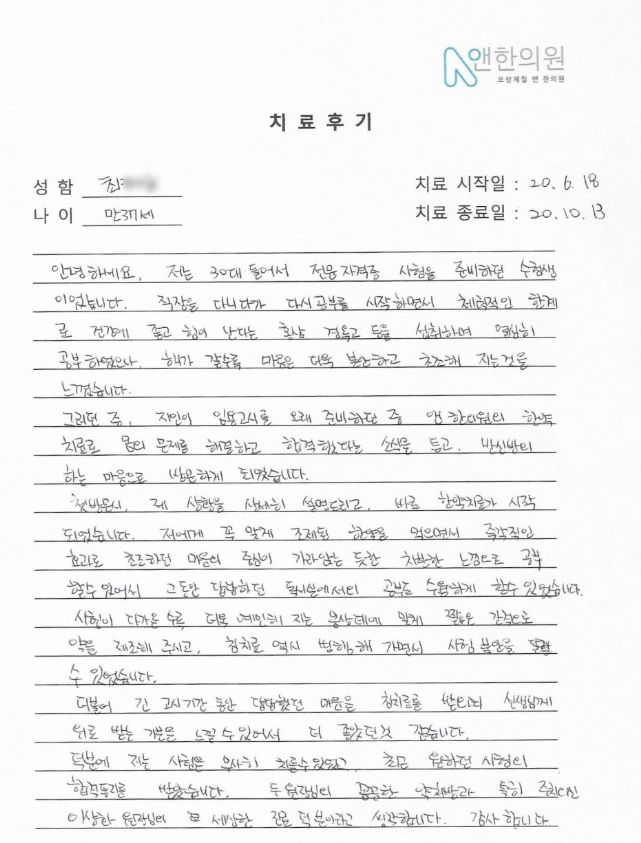 앤한의원
오상체질 앤 한의원
치료후기
성 함 최
나 이 만37세
치료 시작일 : 20. 6. 18
치료 종료일 : 20. 10. 13
안녕하세요. 저는 30대 들어서 전문자격증 시험을 준비하던 수험생
이었습니다. 직장을 다니다가 다시 공부를 시작하면서 체력적인 한계
로 건강에 좋고 힘이 난다는 홍삼 경옥고 등을 섭취하며 열심히
공부하였으나, 해가 갈수록 마음은 더욱 불안하고 초조해 지는것을
느꼈습니다.
그러던 중, 지인이 임용고시를 오래 준비하던 중 앤 한의원의 한약
치료로 몸의 문제를 해결하고 합격하였다는 소식을 듣고, 반신반의
하는 마음으로 방문하게 되었습니다.
첫방문시, 제 상황을 상세히 설명드리고, 바로 한약치료가 시작
되었습니다. 저에게 꼭 맞게 조제된 한약을 먹으면서 즉각적인
효과로 초조하던 마음의 중심이 가라앉는 듯한 차분한 느낌으로 공부
할수 있어서 그동안 답답하던 독서실에서의 공부도 수월하게 할수 있었습니다.
시험이 다가올 수록, 더욱 예민해 지는 몸상태에 맞게 짧은 간격으로
약을 제조해 주시고, 침치료 역시 병행해 가면서 시험 불안을
수 있었습니다.
더불어 긴 고시기간 동안 답답했던 마음을 침치료를 받으며 선생님께
위로 받는 기분을 느낄 수 있어서 더 좋았던것 같습니다.
덕분에 저는 시험을 무사히 치를수있었고, 최근 원하던 시험의
합격통지를 받았습니다. 두 원장님의 꼼꼼한 약처방과 특히 주치의신
이상한 원장님의 세심한 진료 덕분이라고 생각합니다. 감사합니다